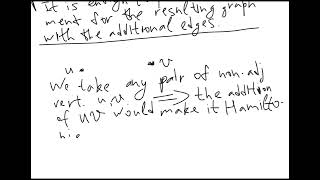 It is enough
ment for the resulting graph
with the additional edges.
u. .v
We take any pair of non-adj
vert. u,v. => the addition
of uv would make it Hamilto-